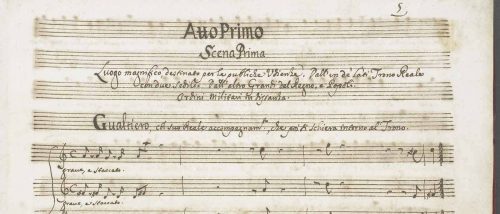 5
Atto Primo
Scena Prima
Luogo magnifico destinato per la publiche Udienza. Dall' un de' lati Trono Reale
con due Sedili. Dall' altro Grandi del Regno, e Popoli.
Ordini Militari in distanza.
Gualtiero, col suo Reale accompagnam.to, che poi si schiera intorno al Trono.
Grave, e Staccato.
Grave, e Staccato.